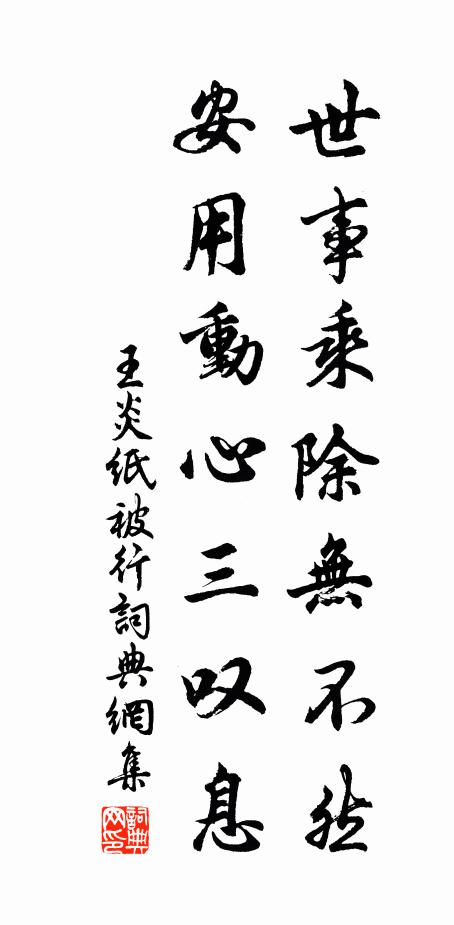 世事乘除無不然
安用動心三叹息
王炎紙被行詞典網集
詞典
网印